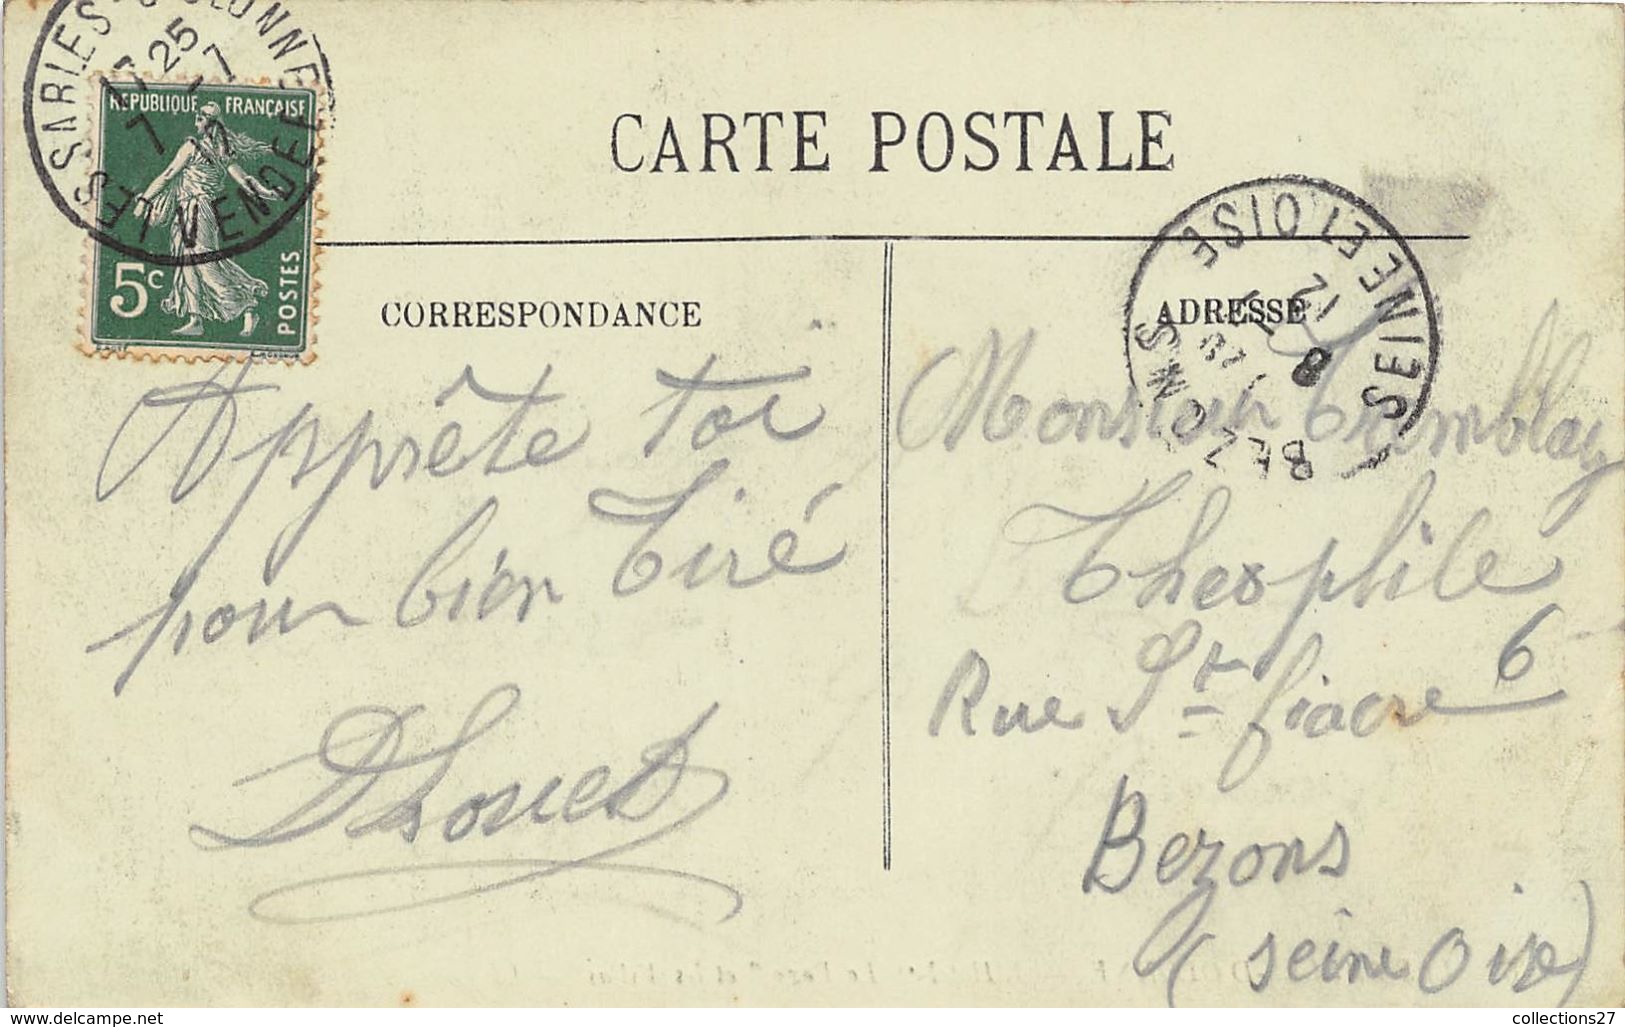 LES SABLES-D'OLONNE
VENDEE
17 25
7 -7
12
REPUBLIQUE FRANÇAISE
5c
POSTES
CARTE POSTALE
CORRESPONDANCE
ADRESSE
BEZONS
SEINE ET OISE
8
12
Apprête toi
pour bien Tiré
Monsieur Tremblay
Theophile
Rue St fiacre 6
Bezons
(Seine Oise)
delcampe.net
collections27